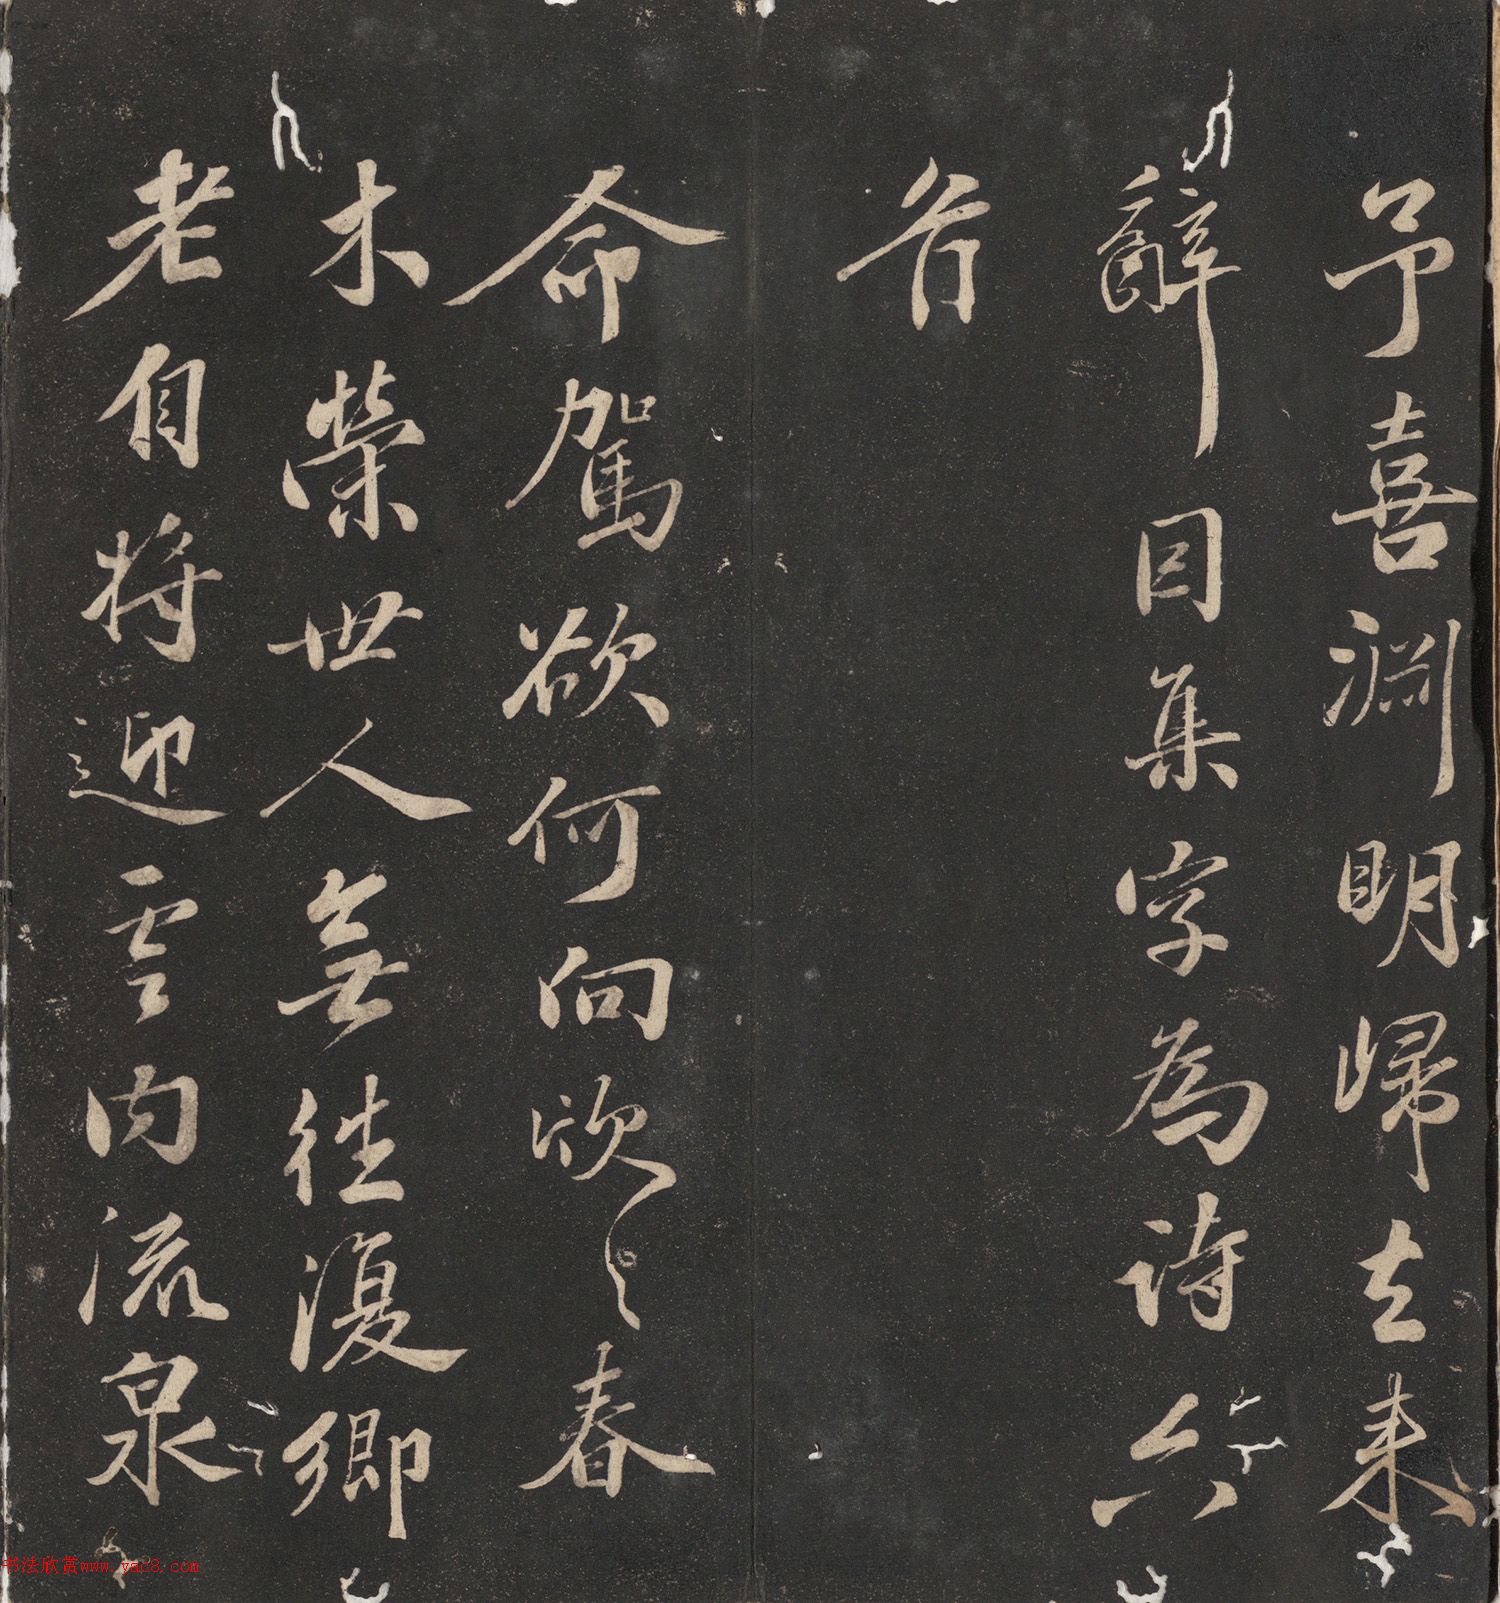 予喜淵明歸去来
辭因集字為詩六
首
命駕欲何向欣〻春
木榮世人無往復鄉
老自將迎雲内流泉
书法欣赏www.yac8.com